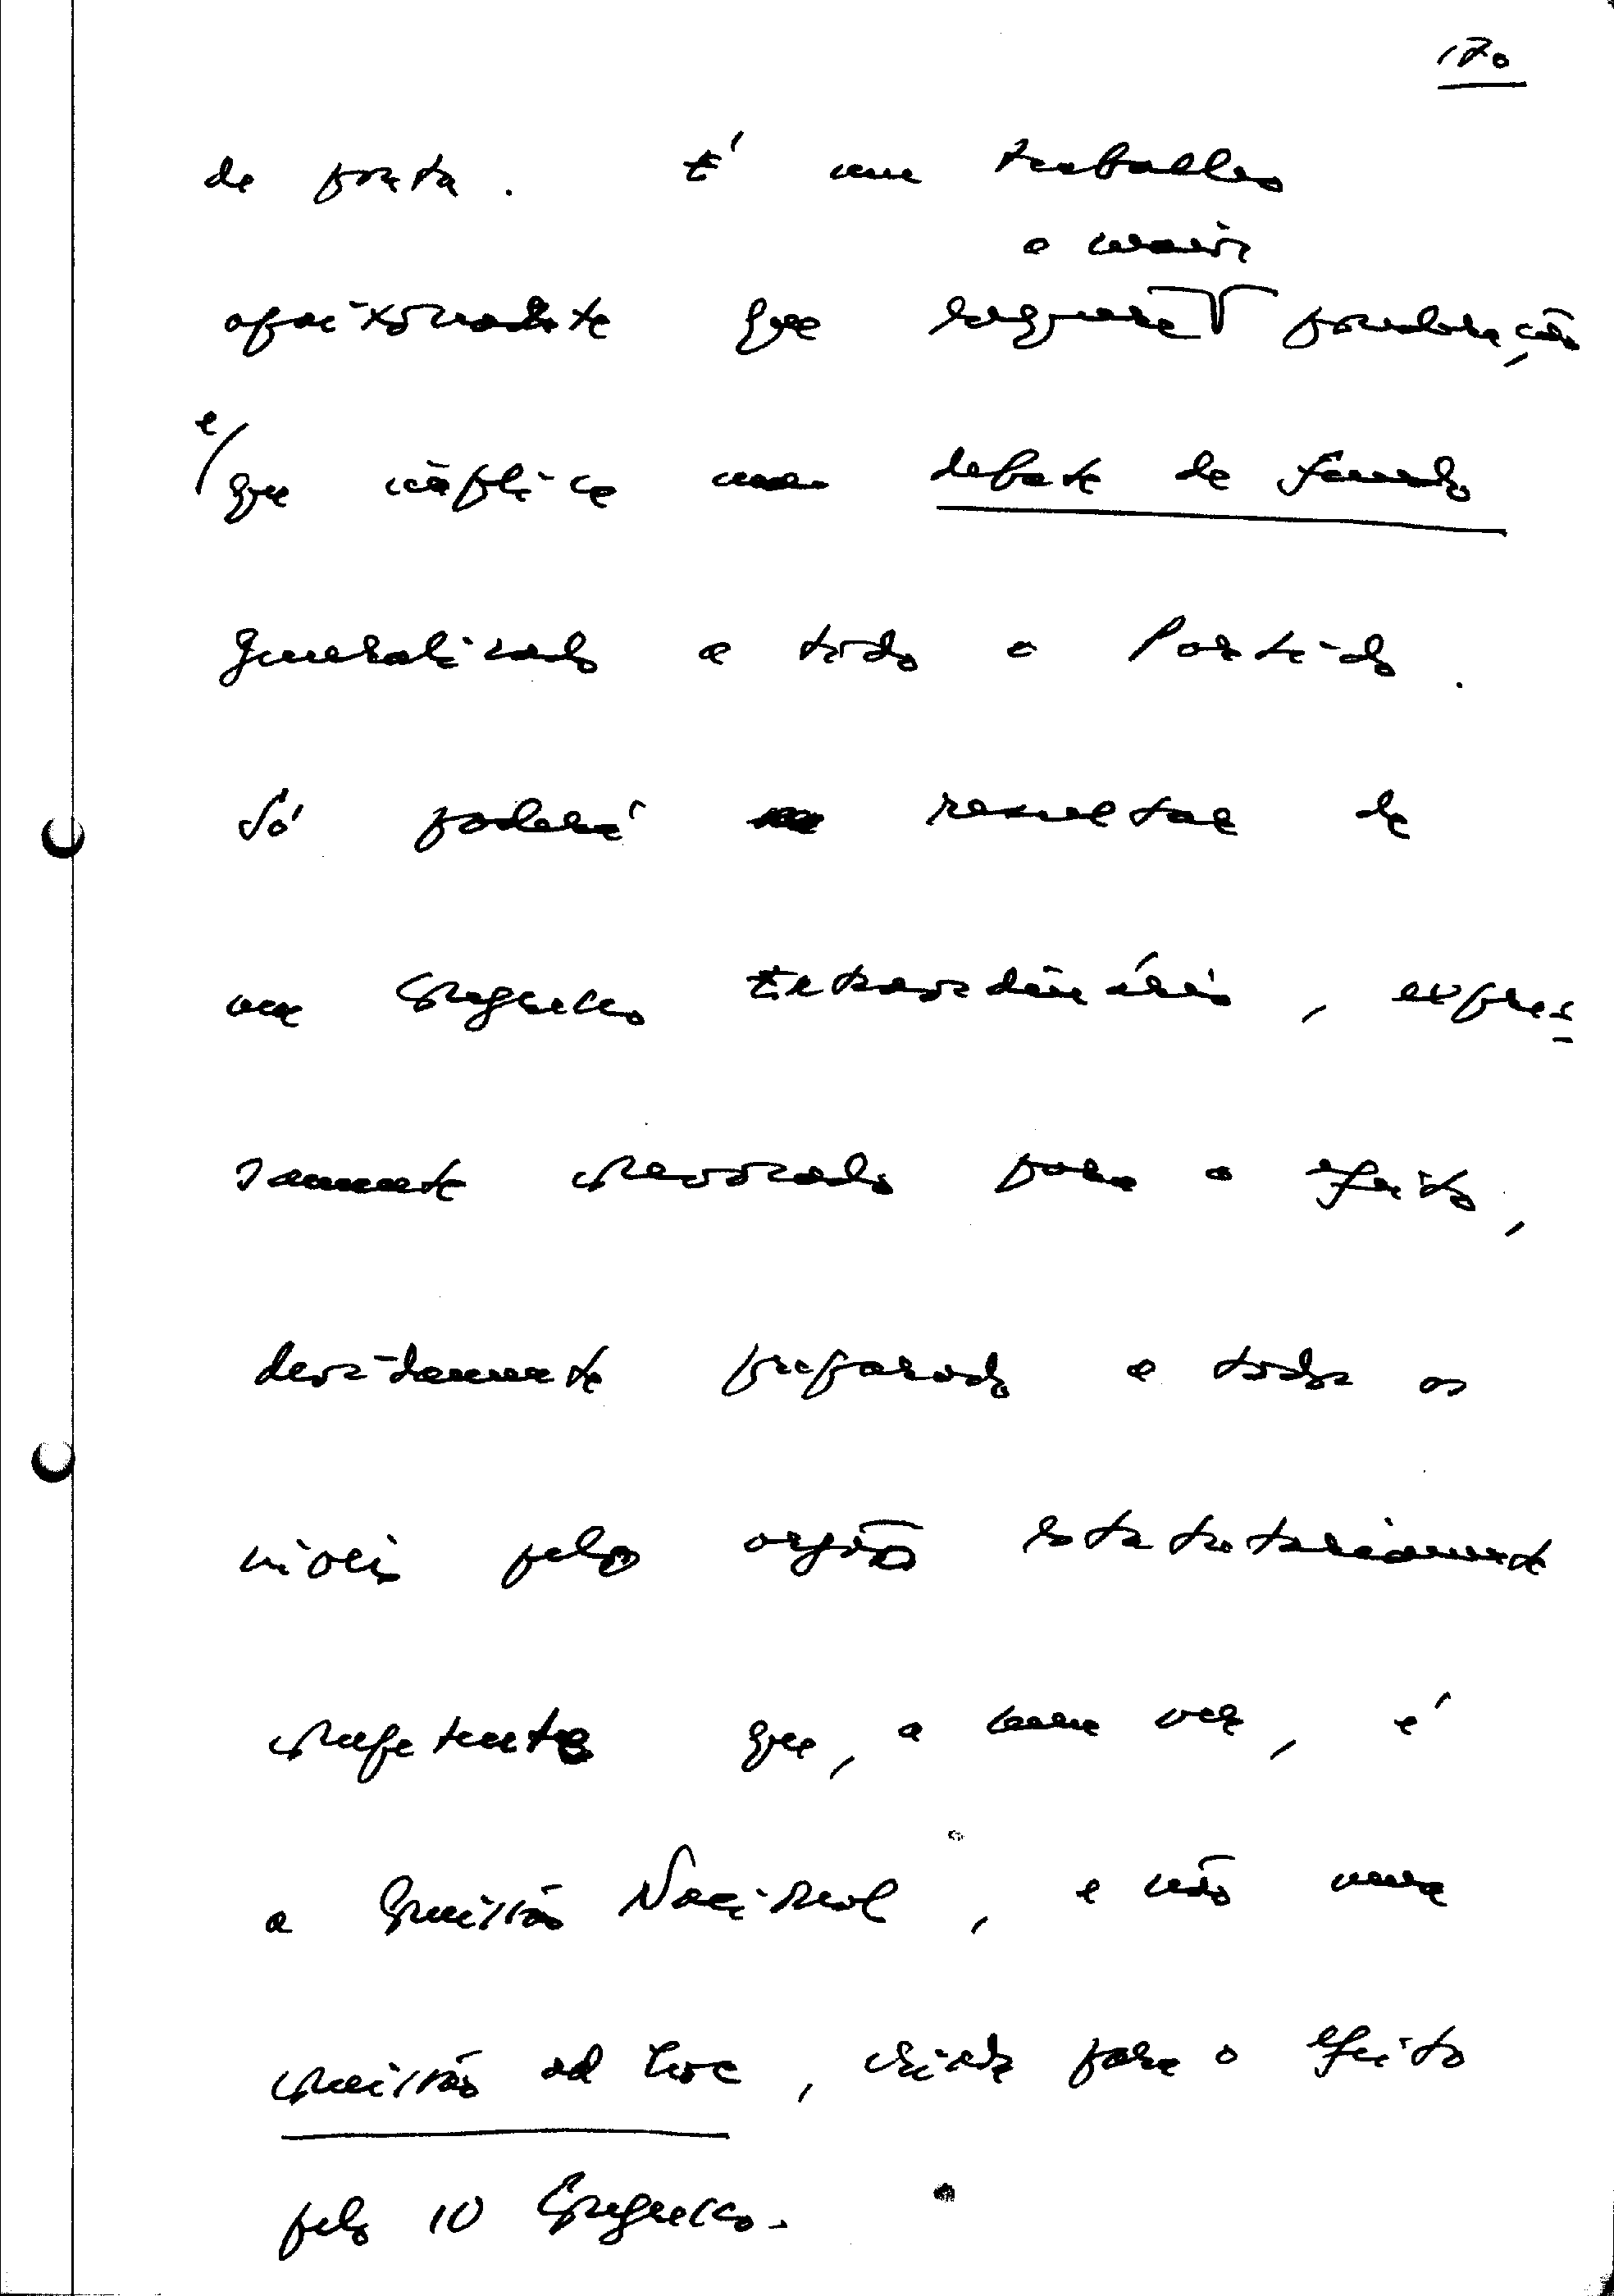 170
de ponta. É um trabalho
a maior
apaixonante que requere ponderação
e
que implica um debate de fundo
generalizado a todo o Partido.
Só poderá resultar de
um Congresso Extraordinário, expres
samente convocado para o efeito,
devidamente preparado a todos os
níveis pelos orgãos estatutariamente
competentes que, a meu ver, é
a Comissão Nacional, e não uma
comissão ad hoc, criada para o efeito
pelo IV Congresso.